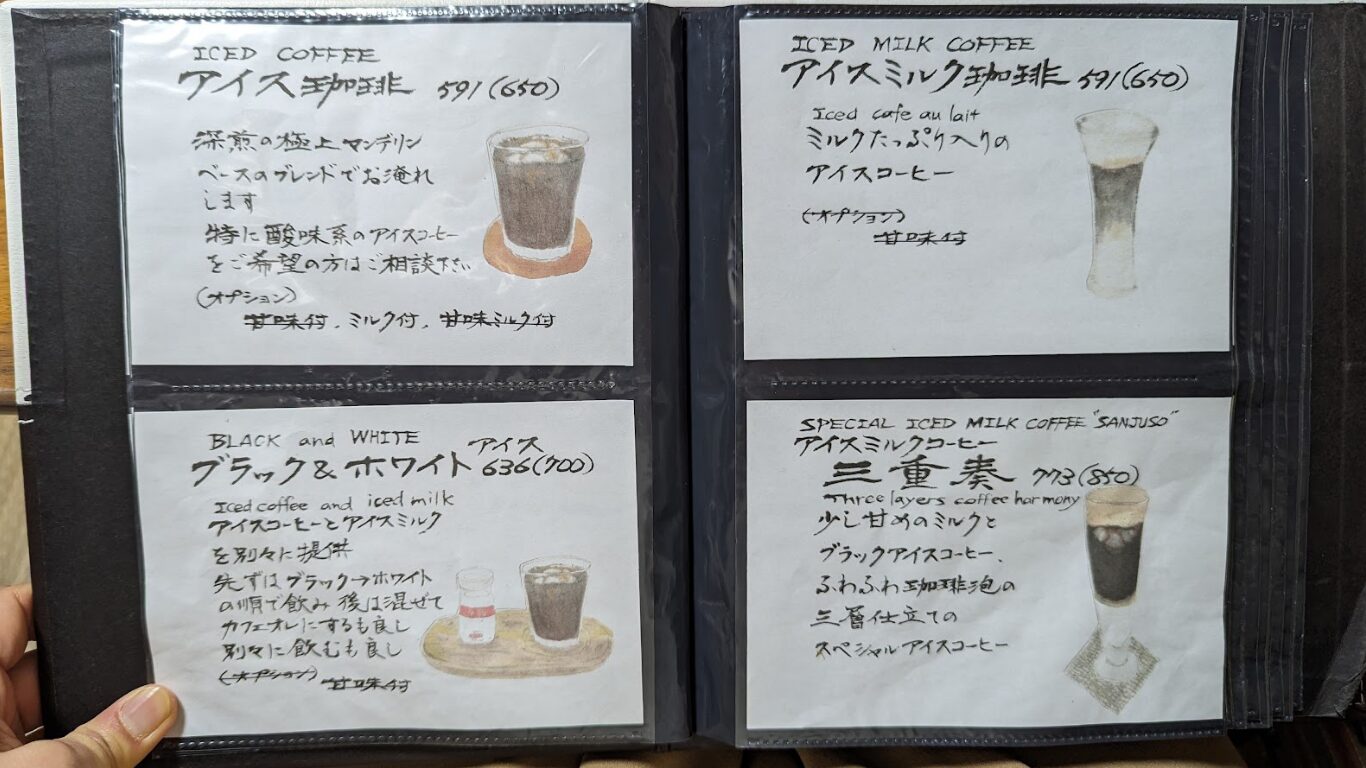 ICED COFFEE
アイス珈琲 591(650)
深煎の極上マンデリン
ベースのブレンドでお淹れ
します
特に酸味系のアイスコーヒー
をご希望の方はご相談下さい
(オプション)
甘味付, ミルク付, 甘味ミルク付
BLACK and WHITE アイス
ブラック&ホワイト 636(700)
Iced coffee and iced milk
アイスコーヒーとアイスミルク
を別々に提供
先ずはブラック→ホワイト
の順で飲み 後は混ぜて
カフェオレにするも良し
別々に飲むも良し
(オプション) 甘味付
ICED MILK COFFEE
アイスミルク珈琲 591(650)
Iced cafe au lait
ミルクたっぷり入りの
アイスコーヒー
(オプション)
甘味付
SPECIAL ICED MILK COFFEE "SANJUSO"
アイスミルクコーヒー
三重奏 773(850)
Three layers coffee harmony
少し甘めのミルクと
ブラックアイスコーヒー、
ふわふわ珈琲泡の
三層仕立ての
スペシャルアイスコーヒー